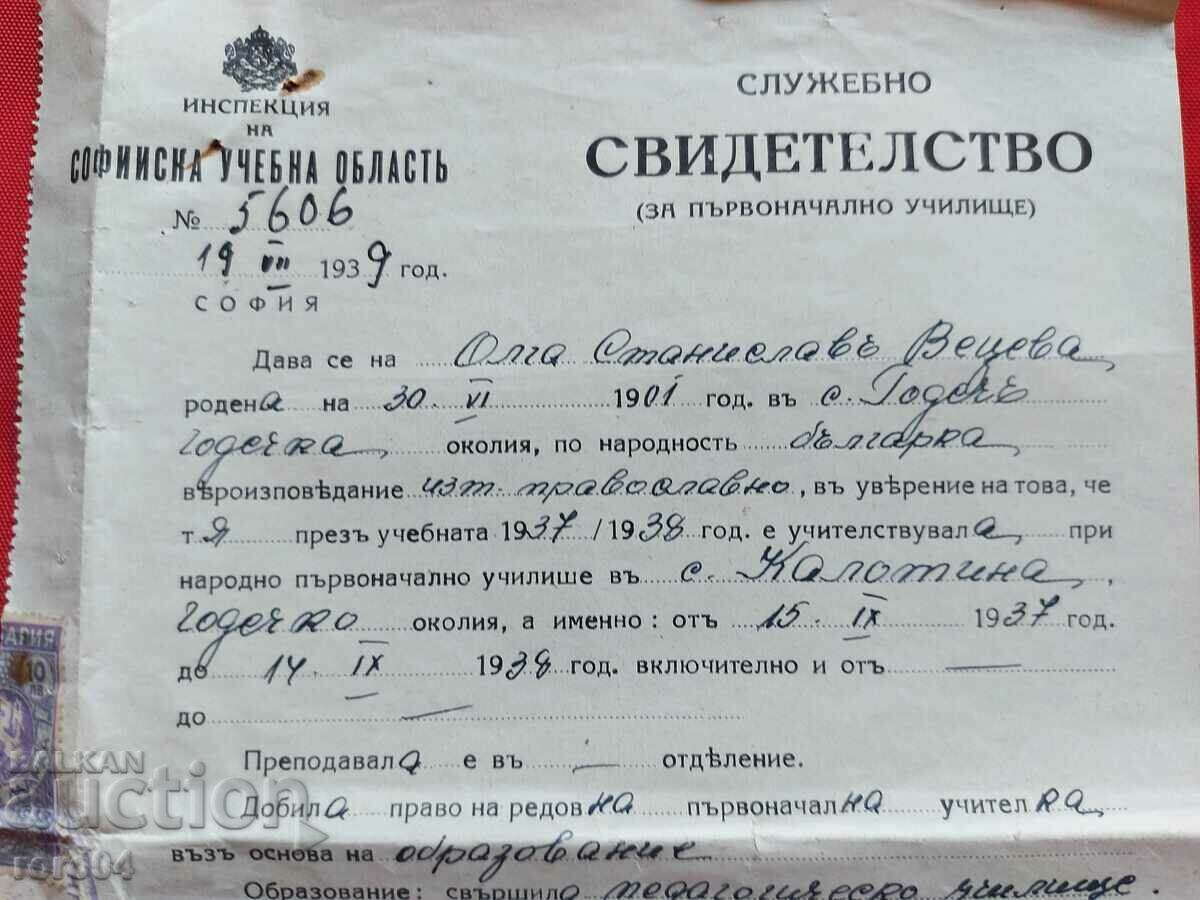 ИНСПЕКЦИЯ
НА
СОФИЙСКА УЧЕБНА ОБЛАСТЬ
№ 5606
19 VII 1939 год.
СОФИЯ
СЛУЖЕБНО
СВИДЕТЕЛСТВО
(ЗА ПЪРВОНАЧАЛНО УЧИЛИЩЕ)
Дава се на Олга Станиславъ Вецева
родена на 30. VI 1901 год. въ с. Годечъ
Годечка, околия, по народность българка,
вѣроизповѣдание изт. православно, въ увѣрение на това, че
тя презъ учебната 1937/1938 год. е учителствувала, при
народно първоначално училище въ с. Калотина,
Годечко околия, а именно: отъ 15. IX 1937 год.
до 14. IX 1938 год. включително и отъ —
до —
Преподавала е въ — отдѣление.
Добила право на редовна първоначална учителка,
възъ основа на образование
Образование: свършила педагогическо училище.
10
ЛВ.
BALKAN
auction
rord04